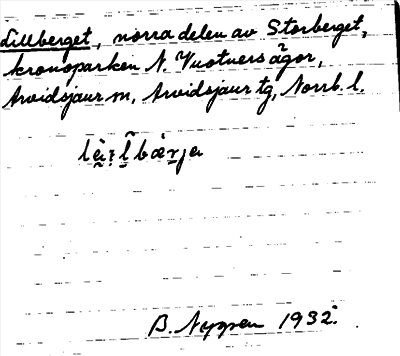 Lillberget, norra delen av Storberget,
kronoparken N. Vuotners ägor,
Arvidsjaur sn, Arvidsjaur tg, Norrb. l.
B. Nygren 1932.